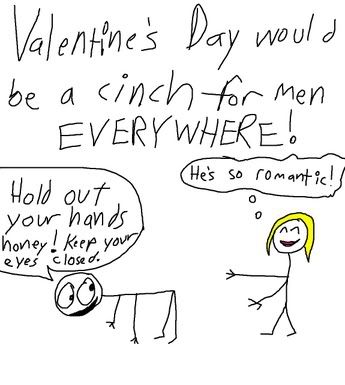 Valentine's Day would
be a cinch for men
EVERYWHERE!
Hold out
your hands
honey! Keep your
eyes closed.
He's so romantic!